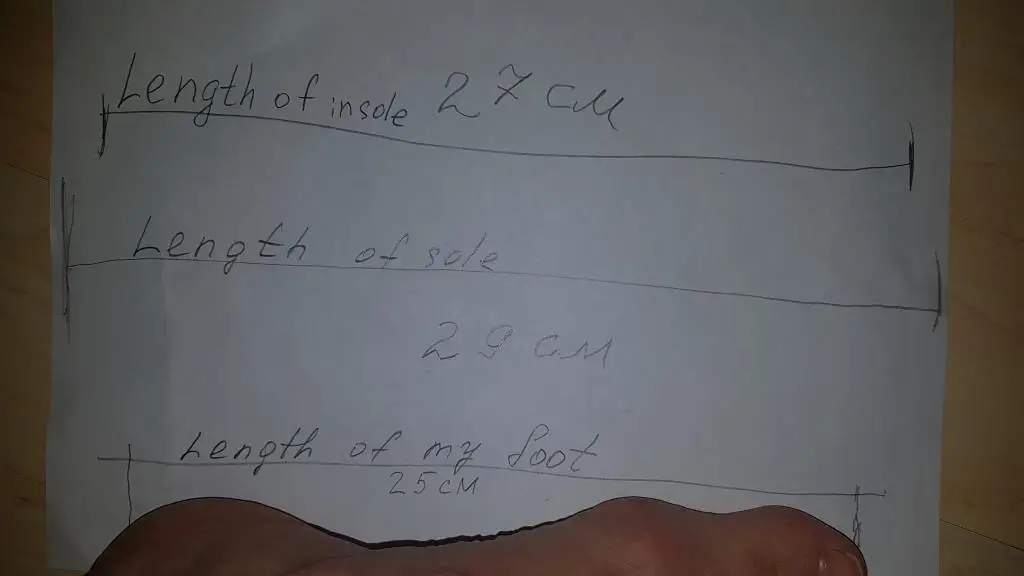 Length of insole 27 см
Length of sole
29 см
Length of my foot
25 см